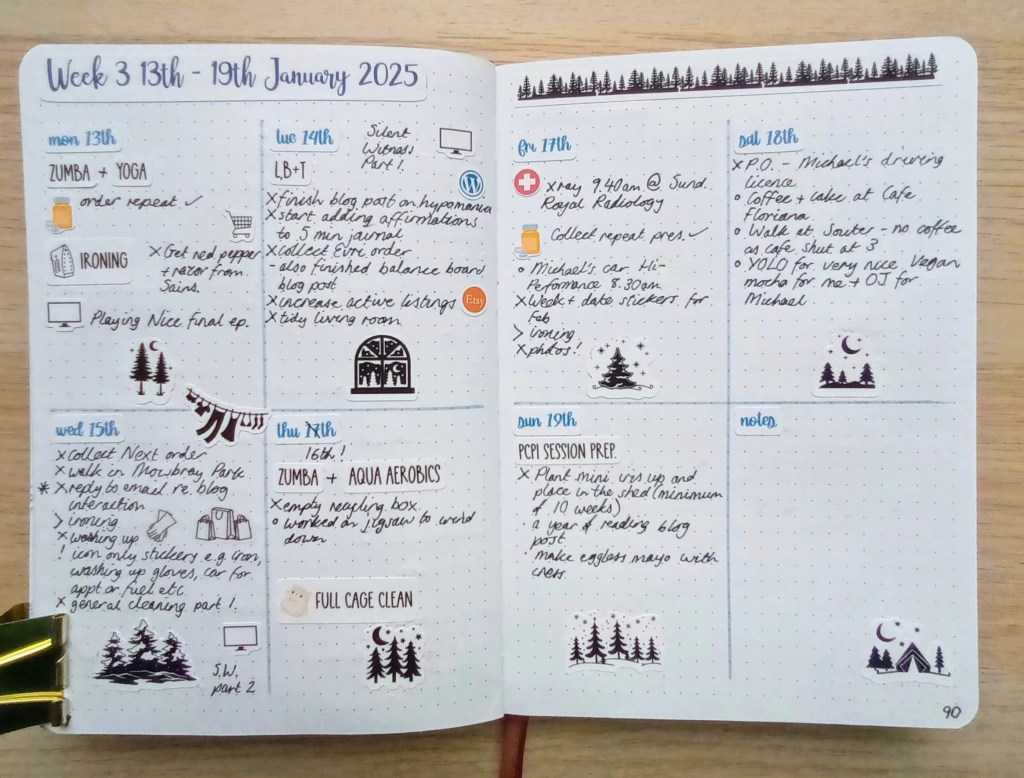 Week 3 13th - 19th January 2025
mon 13th
ZUMBA + YOGA
order repeat ✓
IRONING
x Get red pepper
+ razor from
Sains.
Playing Nice final ep.
tue 14th
Silent
Witness
Part 1.
LB+T
x finish blog post on hypomania
x start adding affirmations
to 5 min journal
x collect Evri order
- also finished balance board
blog post
x increase active listings
Etsy
x tidy living room
wed 15th
x collect Next order
x walk in Mowbray Park
* x reply to email re. blog
interaction
> ironing
x washing up
! icon only stickers e.g iron,
washing up gloves, car for
appt or fuel etc
x general cleaning part 1.
S.W.
part 2
thu 17th
16th!
ZUMBA + AQUA AEROBICS
x empty recycling box.
o worked on jigsaw to wind
down
FULL CAGE CLEAN
fri 17th
x xray 9.40am @ Sund.
Royal Radiology
Collect repeat pres. ✓
o Michael's car Hi-
Performance 8.30am
x Week + date stickers for
Feb
> ironing
x photos!
sat 18th
x P.O. - Michael's driving
licence
o Coffee + cake at Cafe
Floriana
o Walk at Souter - no coffee
as cafe shut at 3
o YOLO for very nice Vegan
mocha for me + OJ for
Michael
sun 19th
PCPI SESSION PREP.
x Plant mini iris up and
place in the shed (minimum
of 10 weeks)
· a year of reading blog
post
· make eggless mayo with
cress.
notes
90